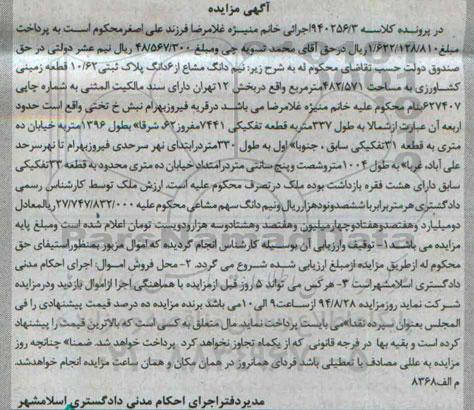 آگهی مزایده
در پرونده کلاسه ۹۴۰۲۵۶/۳اجرائی خانم منیژه غلامرضا فرزند علی اصغرمحکوم است به پرداخت
مبلغ۱/۶۲۲/۱۲۸/۸۱۰ریال درحق آقای محمد تسویه چی ومبلغ۴۸/۵۶۷/۳۰۰ ریال نیم عشر دولتی در حق
صندوق دولت حسب تقاضای محکوم له به شرح زیر: نیم دانگ مشاع از۶دانگ پلاک ثبتی۱۰/۶۲ قطعه زمینی
کشاورزی به مساحت ۴۸۲/۵۷۱مترمربع واقع دربخش ۱۲تهران دارای سند مالکیت المثنی به شماره چاپی
۶۲۷۴۰۷بنام محکوم علیه خانم منیژه غلامرضا می باشد. درقریه فیروزبهرام نبش خ تختی واقع است حدود
اربعه آن عبارت ازشمالا به طول ۳۳۷متربه قطعه تفکیکی ۷۴۴۱مفروز۶۲، شرقا» بطول ۱۳۹۶متربه خیابان ده
متری به قطعه ۳۱تفکیکی سابق ، جنوبا» اول به طول ۳۳۰متردرابتدای نهر سرحدی فیروزبهرام تا نهرسرحد
علی آباد، غربا» به طول ۱۰۰۴متروشصت وپنج سانتی متردرامتداد خیابان ده متری محدود به قطعه ۳۳تفکیکی
سابق دارای هشت فقره بازداشت بوده ملک درتصرف محکوم علیه است. ارزش ملک توسط کارشناس رسمی
دادگستری هرمتربرابرباششصدونودهزارریال ونیم دانگ سهم مشاعی محکوم علیه ۲۷/۷۴۷/۸۳۲/۰۰۰ریالمعادل
دومیلیارد وهفتصدوهفتادوچهارمیلیون وهفتصد وهشتادوسه هزارودویست تومان اعلام شده است ومبلغ پایه
مزایده می باشد. ۱- توقیف وارزیابی آن بوسیله کارشناس انجام گردیده که اموال مزبور بمنظوراستیفای حق
محکوم له ازطریق مزایده ازمبلغ ارزیابی شده شروع می گردد. ۲- محل فروش اموال: اجرای احکام مدنی
دادگستری اسلامشهراست ۳- هرکس می تواند ۵ روز قبل ازمزایده با هماهنگی اجرا ازاموال بازدید ودرمزایده
شرکت نماید روزمزایده ۹۴/۸/۲۸ ازساعت۹ الی۱۰می باشد برنده مزایده ده درصد قیمت پیشنهادی را فی
المجلس بعنوان سپرده نقدا»می بایست پرداخت نماید. مال متعلق به کسی است که بالاترین قیمت را پیشنهاد
کرده است و بقیه بها در فرجه قانونی که از یکماه تجاوز نخواهد کرد پرداخت خواهد شد. ضمنا» چنانچه روز
مزایده به عللی مصادف با تعطیلی باشد فردای همانروز در همان مکان و همان ساعت مزایده انجام خواهدشد.
م الف۸۳۶۸
مدیردفتراجرای احکام مدنی دادگستری اسلامشهر